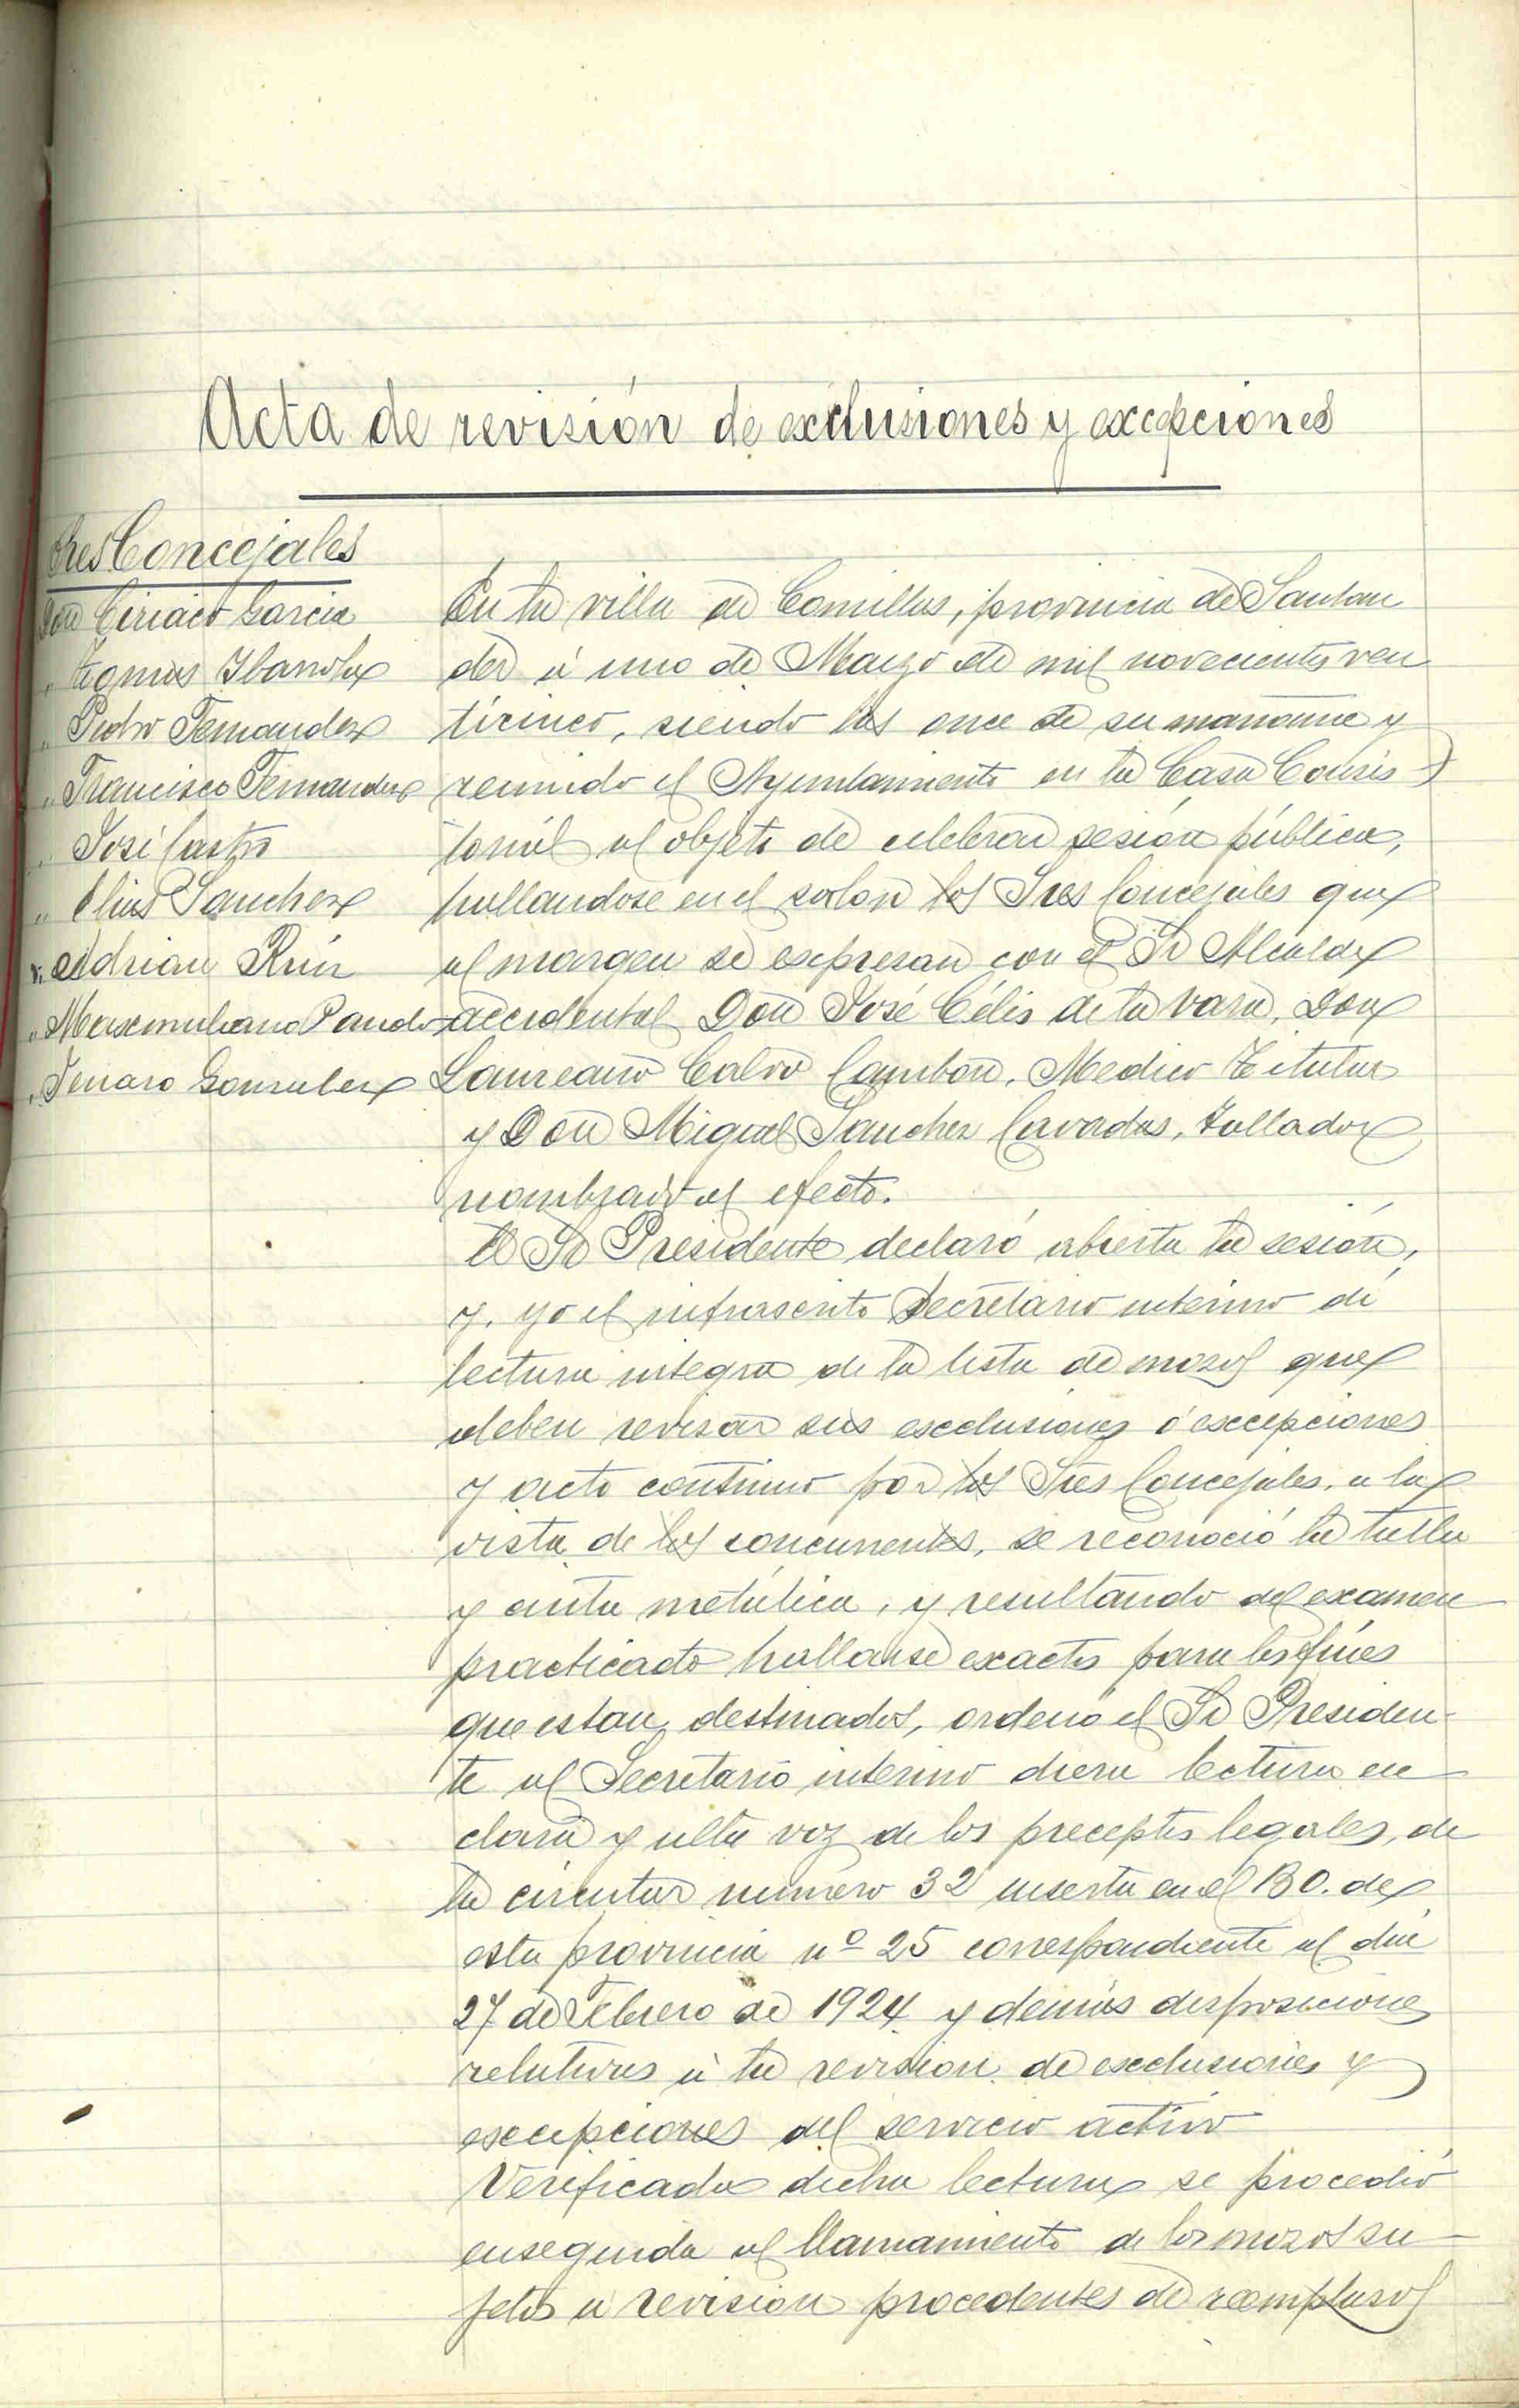 Acta de revisión de exclusiones y excepciones
Sres Concejales
Don Ciriaco Garcia
" Tomas Ibañez
" Pedro Fernandez
" Francisco Fernandez
" José Castro
" Elias Sanchez
" Adrian Ruiz
" Maximiliano Pando
" Jenaro Gonzalez
En la villa de Comillas, provincia de Santan
der á uno de Marzo de mil novecientos ven
ticinco, siendo las once de su mañana y
reunido el Ayuntamiento en la Casa Consis
torial al objeto de celebrar sesión pública,
hallandose en el salon los Sres Concejales que
al margen se expresan con el Sr Alcalde
accidental Don José Célis de la Vara, Don
Laureano Calvo Cambon, Medico Titular
y Don Miguel Sanchez Cavadas, Tallador
nombrado al efecto.
El Sr Presidente declaró abierta la sesión,
y, yo el infrascrito Secretario interino di
lectura integra de la lista de mozos que
deben revisar sus esclusiones ó escepciones
y acto continuo por los Sres Concejales, a la
vista de los concurrentes, se reconoció la talla
y cinta metálica, y resultando del examen
practicado hallarse exactos para los fines
que estan destinados, ordenó el Sr Presiden-
te al Secretario interino diera lectura en
clara y alta voz de los preceptos legales, de
la circular número 32 inserta en el B O. de
esta provincia nº 25 correspondiente al dia
27 de Febrero de 1924 y demás disposiciones
relativas á la revision de esclusiones y
escepciones del servicio activo
Verificada dicha lectura se procedió
enseguida al llamamiento de los mozos su
jetos a revision procedentes de reemplazos